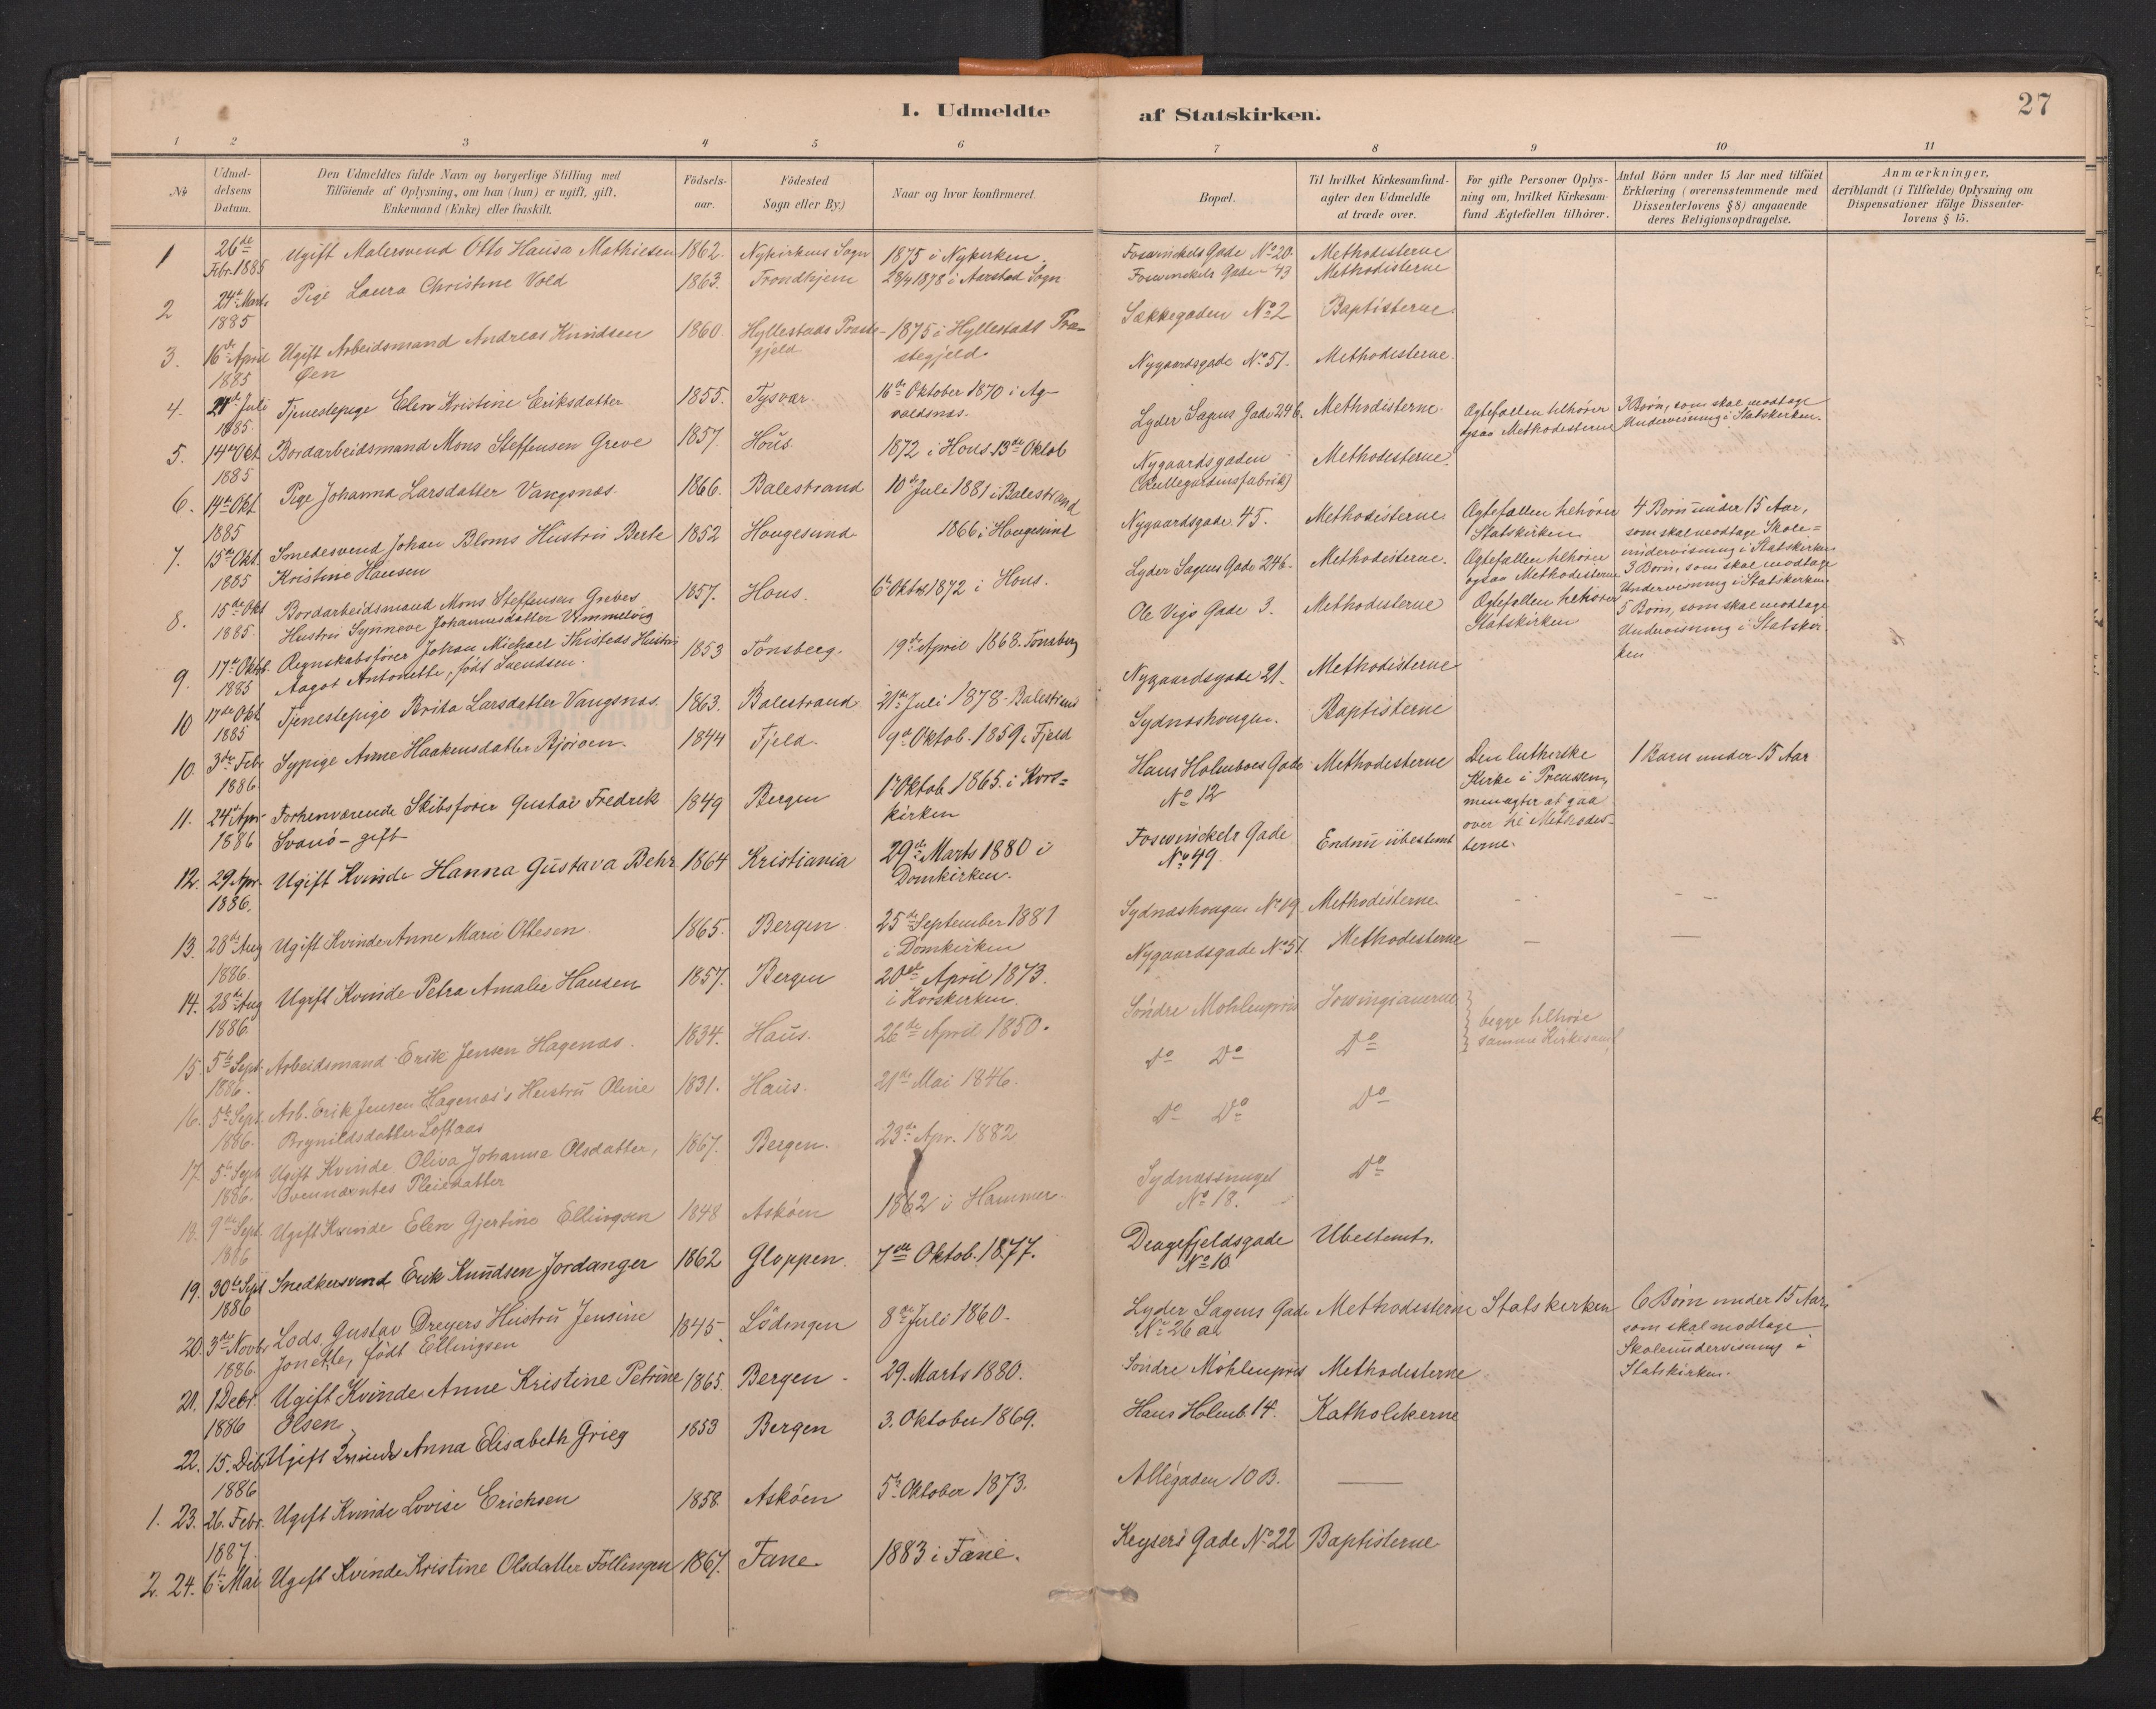 I. Udmeldte af Statskirken.
27
1 2 3 4 5 6 7 8 9 10 11
No
Udmel-
delsens
Datum.
Den Udmeldtes fulde Navn og borgerlige Stilling med
Tilföiende af Oplysning, om han (hun) er ugift, gift,
Enkemand (Enke) eller fraskilt.
Födsels-
aar.
Födested
Sogn eller By.)
Naar og hvor konfirmeret.
Bopæl.
Til hvilket Kirkesamfund-
agter den Udmeldte
at træde over.
For gifte Personer Oplys-
ning om, hvilket Kirkesam-
fund Ægtefællen tilhörer.
Antal Börn under 15 Aar med tilföiet
Erklæring (overensstemmende med
Dissenterlovens § 8) angaaende
deres Religionsopdragelse.
Anmærkninger,
deriblandt (i Tilfælde) Oplysning om
Dispensationer ifölge Dissenter-
lovens § 15.
1 26de Ugift Malersvend Otto Hansa Mathiesen 1862. Nykirkens Sogn 1875 i Nykirken. Foswinckels Gade No 20. Methodisterne
Febr. 1885
2 24de Marts Pige Laura Christine Vold 1863. Trondhjem 28/4 1878 i Aarstad Sogn Foswinckels Gade 43 Methodisterne
1885
3. 16de April Ugift Arbeidsmand Andreas Knudsen 1860. Hyllestads Præste- 1875 i Hyllestads Præ- Sækkegaden No 2 Baptisterne.
1885 Øen gjeld stegjeld.
4. 21de Juli Tjenestepige Elen Kristine Eriksdatter 1855. Tysvær. 16de Oktober 1870 i Ag- Nygaardsgade No 51. Methodisterne.
1885. valdsnæs.
5. 14de Okt. Bordarbeidsmand Mons Steffensen Greve 1857. Hous. 1872 i Hous 13de Oktob Lyder Sagens Gade 246. Methodisterne. Ægtefællen tilhører 3 Børn, som skal modtage
1885 ogsaa Methodisterne Undervisning i Statskirken.
6. 14de Okt. Pige Johanna Larsdatter Vangsnæs. 1866. Balestrand 10de Juli 1881 i Balestrand Nygaardsgaden Methodisterne.
1885 (Rullegardinsfabrik)
7. 15de Okt. Smedesvend Johan Bloms Hustru Berte 1852 Hougesund 1866 i Hougesund Nygaardsgade 45. Methodisterne. Ægtefællen tilhører 4 Børn under 15 Aar,
1885 Kristine Hansen Statskirken som skal modtage Skole-
undervisning i Statskirken
8. 15de Okt Bordarbeidsmand Mons Steffensen Greves 1857. Hous. 6te Oktbr 1872 i Hous. Lyder Sagens Gade 246. Methodisterne. Ægtefællen tilhører 3 Børn, som skal modtage
1885. Hustru Synneve Johannesdatter Vimmelvig ogsaa Methodisterne Undervisning i Statskirken
9. 17de Oktb. Regnskabsfører Johan Michael Thisteds Hustru 1853 Tønsberg. 19de April 1868. Tønsberg Ole Vigs Gade 3. Methodisterne Ægtefællen tilhører 5 Børn, som skal modtage
1885 Aagot Antonette, født Svendsen. Statskirken Undervisning i Statskir-
ken
10 17de Okt. Tjenestepige Brita Larsdatter Vangsnæs. 1863. Balestrand 21de Juli 1878 - Balestrand Nygaardsgade 21. Methodisterne
1885
10. 3de Febr. Sypige Anne Haakensdatter Bjøroen. 1844 Fjeld. 9de Oktob. 1859 i Fjeld Sydnæshougen. Baptisterne
1886
11. 24de Apr. Forhenværende Skibsfører Gustav Fredrik 1849 Bergen 1ste Oktob. 1865. i Kors- Hans Holmboes Gade Methodisterne Den lutherske 1 Barn under 15 Aar
1886 Svanö - gift kirken No 12 Kirke i Preussen,
men agter at gaa
over til Methodis-
terne.
12. 29 Apr. Ugift Kvinde Hanna Gustava Behr 1864 Kristiania 29de Marts 1880 i Foswinckels Gade Endnu ubestemt
1886. Domkirken. No 49.
13. 28de Aug Ugift Kvinde Anne Marie Ottesen. 1865. Bergen 25de September 1881 Sydnæshougen No 19. Methodisterne
1886. i Domkirken
14. 28de Aug Ugift Kvinde Petra Amalie Hansen 1857. Bergen 20de April 1873. Nygaardsgade No 51. Methodisterne
1886. i Korskirken.
15. 5te Sept. Arbeidsmand Erik Jensen Hagenæs. 1834. Haus. 26de April 1850. Søndre Møhlenpriis Irvingianerne begge tilhøre
1886. samme Kirkesamf.
16. 5te Sept. Arb. Erik Jensen Hagenæs's Hustru Oline 1831. Haus. 21de Mai 1846. Do Do Do
1886. Brynildsdatter Loftaas
17. 5te Sept. Ugift Kvinde Oliva Johanne Olsdatter, 1867. Bergen. 23de Apr. 1882 Do Do Do
1886. Ovennævntes Pleiedatter
18. 9de Sept. Ugift Kvinde Elen Gjertine Ellingsen 1848 Askøen 1862 i Hammer Sydnæssmuget Do
1886 No 18.
19. 30te Sept Snedkersvend Erik Knudsen Jordanger 1862 Gloppen. 7de Oktob. 1877. Dragefjeldsgade Ubestemt.
1886 No 10.
20. 3de Novbr Lods Gustav Dreyers Hustru Jensine 1845. Lödingen 8de Juli 1860. Lyder Sagens Gade Methodisterne Statskirken 6 Børn under 15 Aar,
1886. Jonette, født Ellingsen No 26 a. som skal modtage
Skoleundervisning i
Statskirken.
21. 1 Decbr. Ugift Kvinde Anne Kristine Petrine 1865. Bergen - 29. Marts 1880. Søndre Möhlenpris Methodisterne
1886 Olsen
22. 15. Deb. Ugift Kvinde Anna Elisabeth Grieg 1853 Bergen 3. Oktober 1869. Hans Holmb. 14. Katholikerne
1886
1. 23. 26. Febr. Ugift Kvinde Lovise Erichsen 1858. Askøen 5te Oktober 1873. Allégaden 10 B.
1887.
2. 24. 6te Mai Ugift Kvinde Kristine Olsdatter Föllingen 1867. Fane. 1883 i Fane. Keysers Gade No 22 Baptisterne